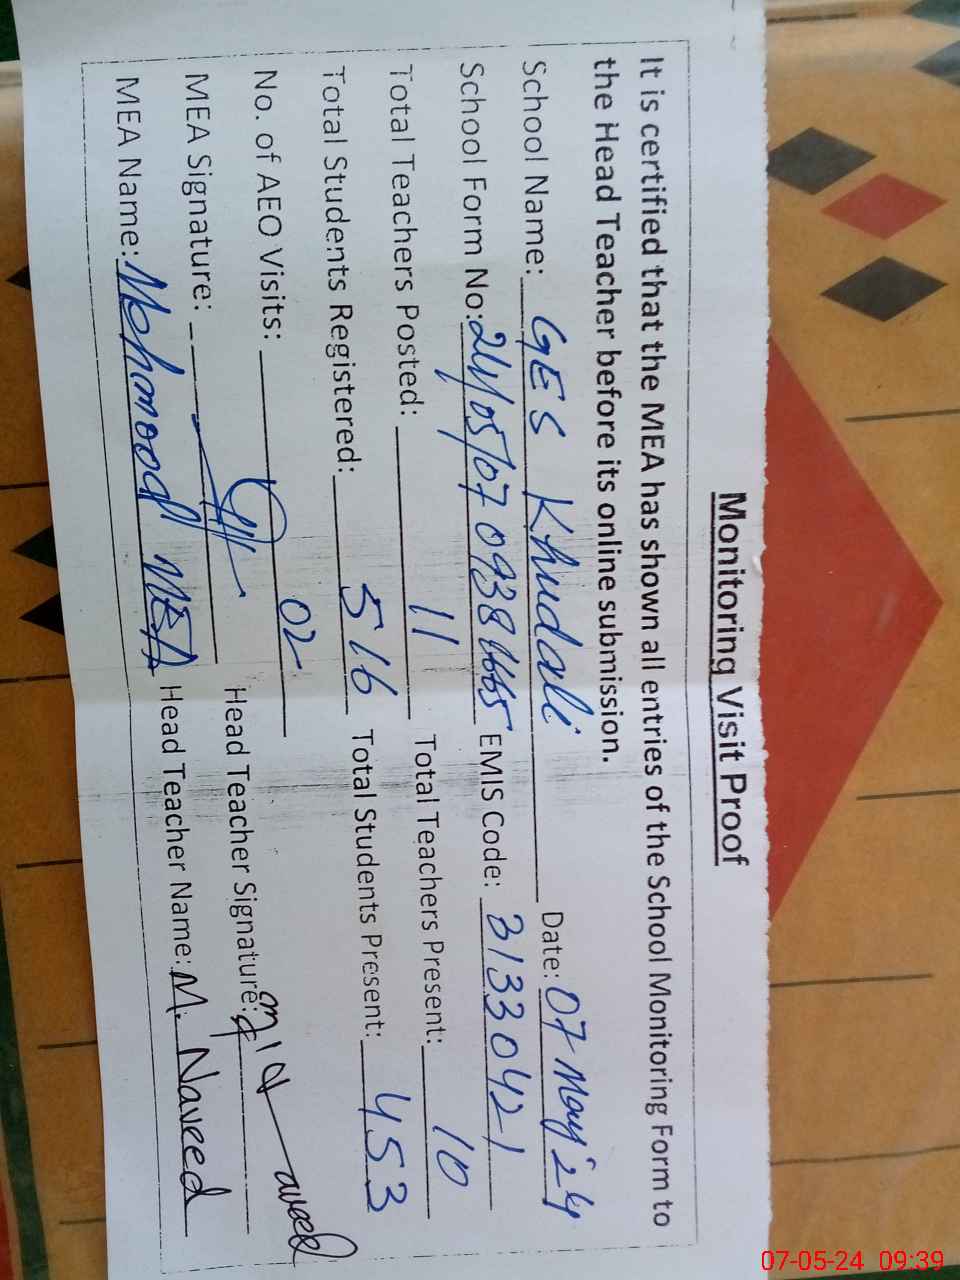 Monitoring Visit Proof
It is certified that the MEA has shown all entries of the School Monitoring Form to
the Head Teacher before its online submission.
School Name: GES Khudali Date: 07 May'24
School Form No: 24/05/07 0938 6665 EMIS Code: 31330421
Total Teachers Posted: 11 Total Teachers Present: 10
Total Students Registered: 516 Total Students Present: 453
No. of AEO Visits: 02
MEA Signature: Head Teacher Signature:
MEA Name: Mehmood MEA Head Teacher Name: M. Naveed
07-05-24 09:39